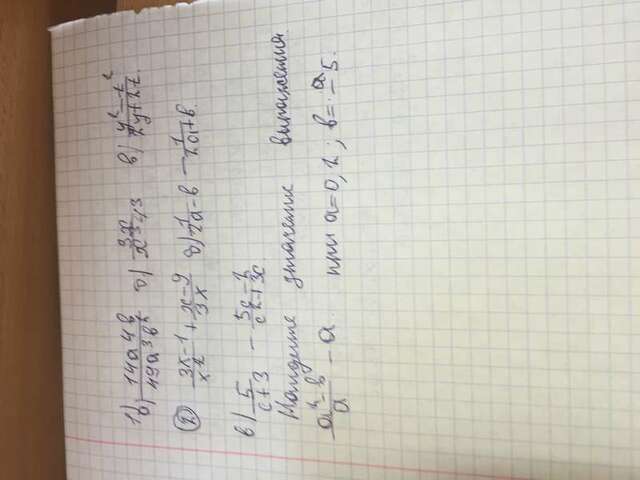 1) а) 14a⁴b/49a³b² б) 3x/x²-3 в) y²-z²/2y+2z
② 3x-1/x² + x-9/3x б) 1/2a-b - 1/2a+b
в) 5/c+3 -
Найдите значение выражения
a²-b/a - a при a=0,2; b=-5.